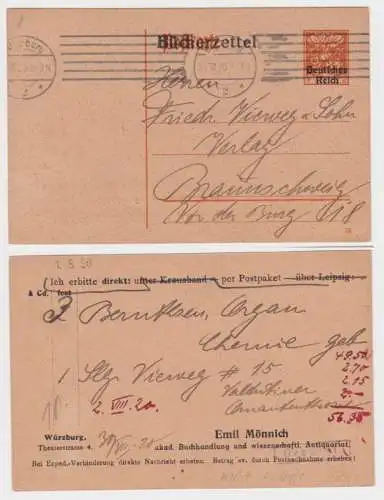 Bücherzettel
Deutsches
Reich
Herren
Friedr. Vieweg u. Sohn
Verlag
Braunschweig
Vor der Burg 18
2.8.20
Ich erbitte direkt: unter Kreuzband – per Postpaket – über Leipzig:
à Cd. fest
3 Bernthsen, Organ
Chemie geb
49.50
1 Slg. Vieweg # 15
2.70
2.15
Valentiner
2. VIII. 20.
56.35
Würzburg,
Theaterstrasse 4.
30/VII. 20
Emil Mönnich
akad. Buchhandlung und wissenschaftl. Antiquariat.
Bei Exped.-Verhinderung direkte Nachricht erbeten. Betrag ev. durch Postnachnahme erheben!